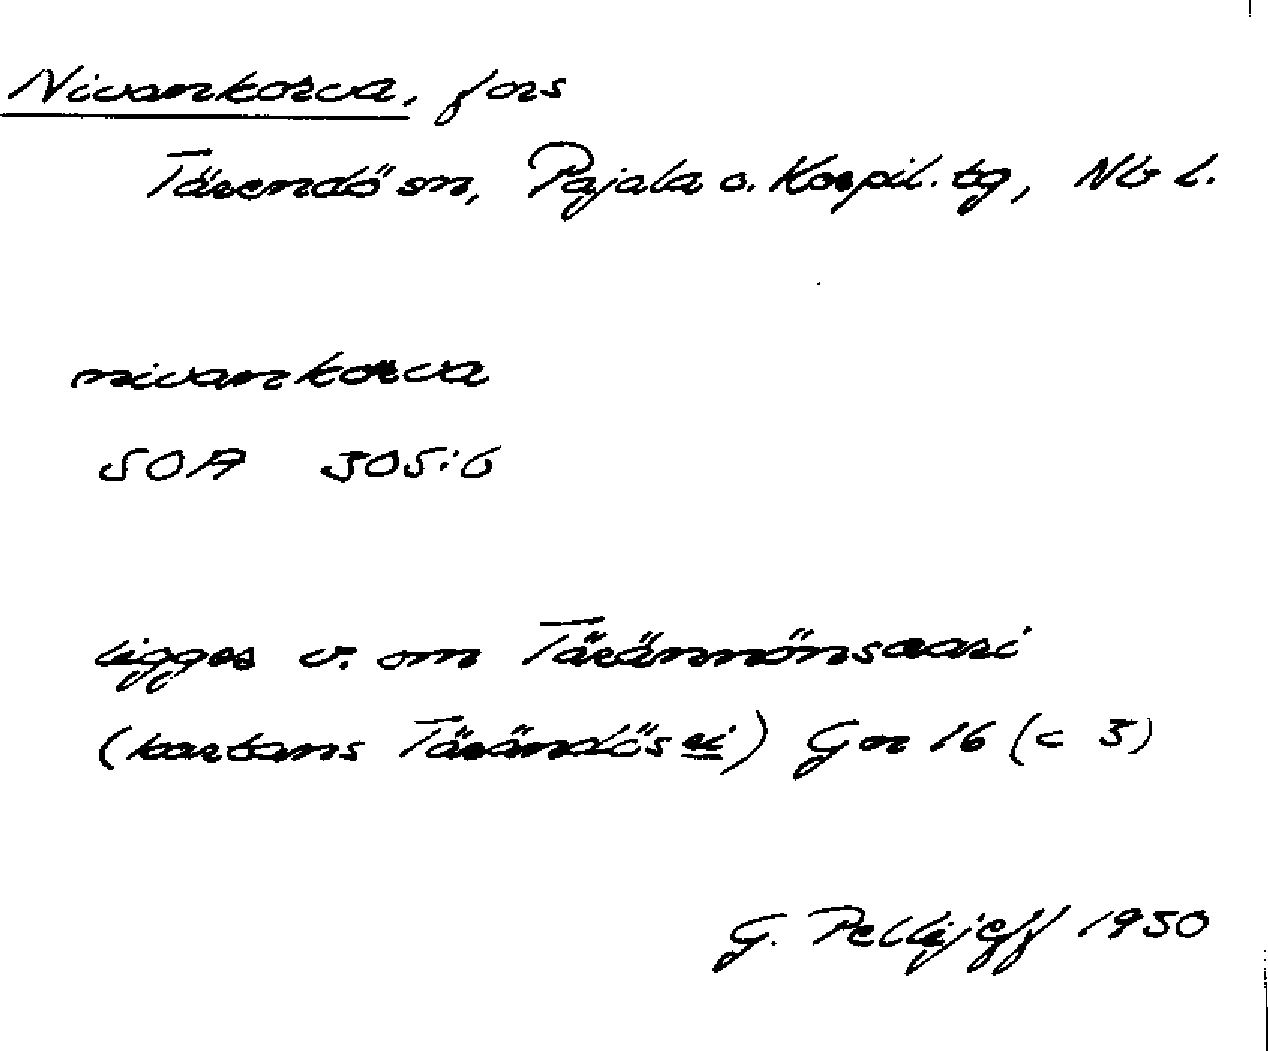 Nivankorva, fors
Tärendö sn, Pajala o. Korpil. tg, Nb l.
nivankorva
SOA 305:6
ligger v. om Tärännönsaari
(kartans Tärändös ri) Gor 16 (c 3)
G. Pellijeff 1950